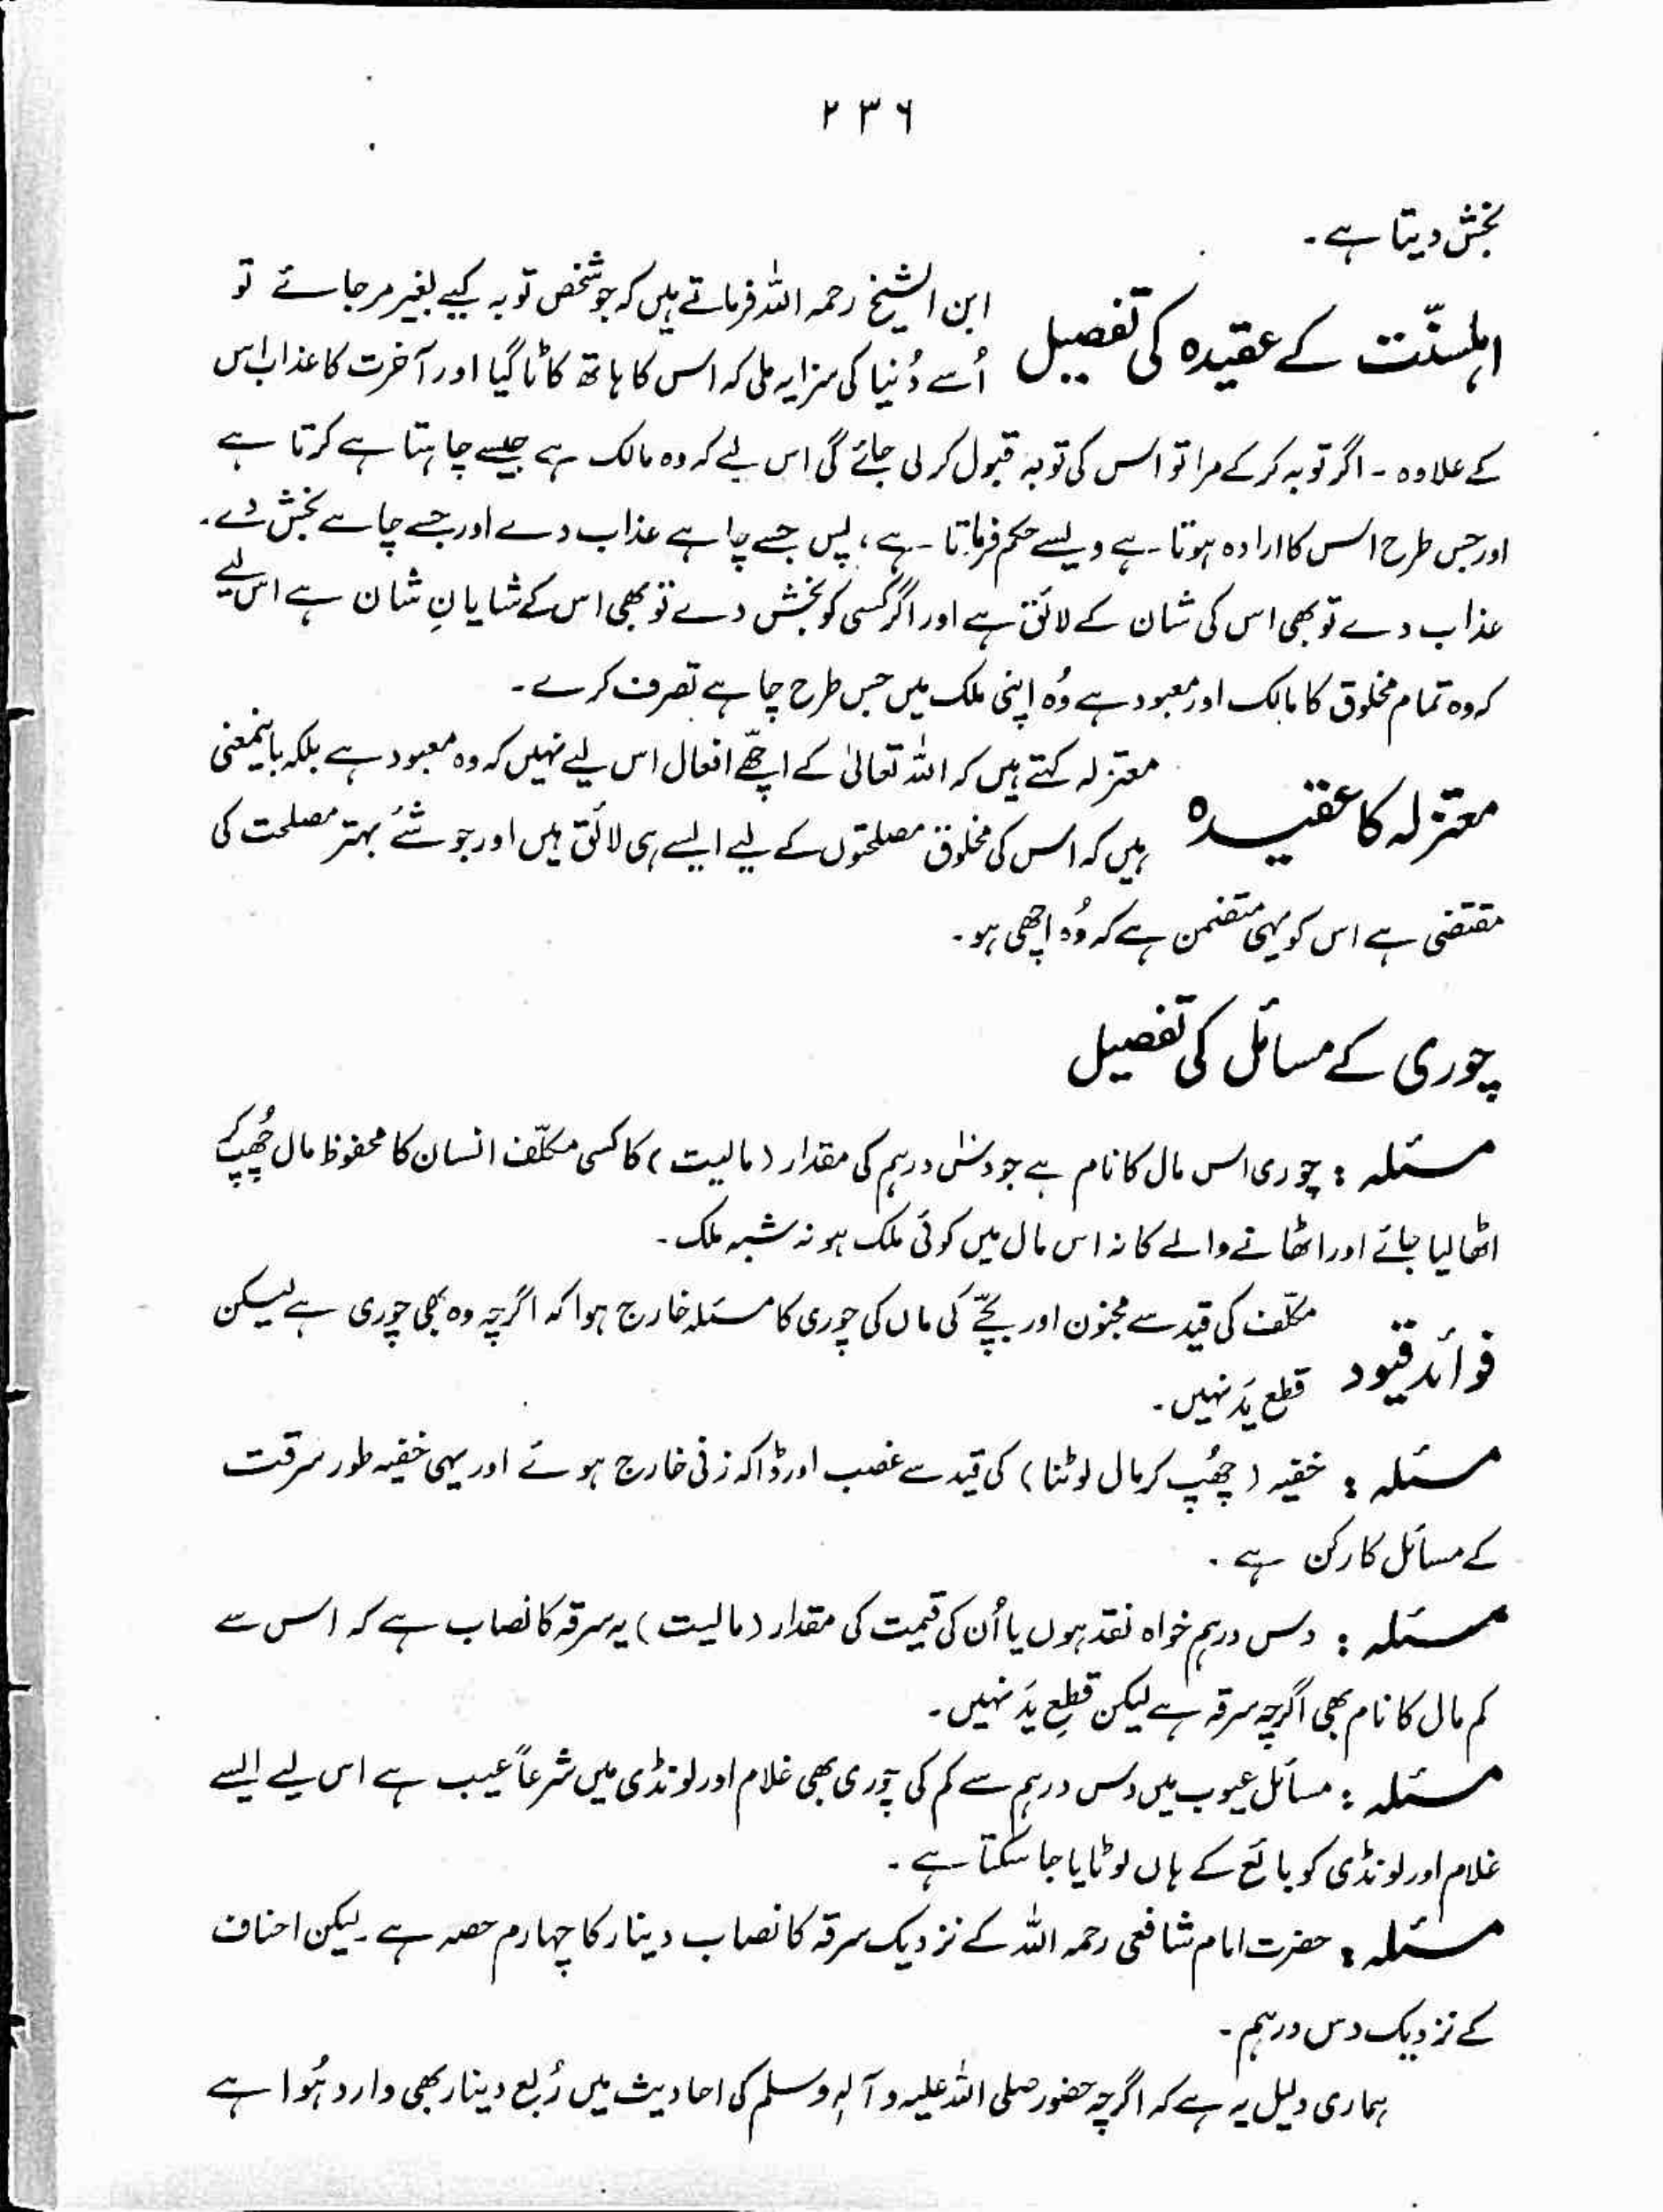 ۲۳۶
بخش دیتا ہے۔
اہلسنّت کے عقیدہ کی تفصیل ابن الشیخ رحمہ اللہ فرماتے ہیں کہ جو شخص توبہ کیے بغیر مرجائے تو
اُسے دُنیا کی سزا یہ ملی کہ اس کا ہاتھ کاٹا گیا اور آخرت کا عذاب اس
کے علاوہ ۔ اگر توبہ کرکے مرا تو اس کی توبہ قبول کر لی جائے گی اس لیے کہ وہ مالک ہے جیسے چاہتا ہے کرتا ہے
اور جس طرح اس کا ارادہ ہوتا ہے ویسے حکم فرماتا ہے، پس جسے چاہے عذاب دے اور جسے چاہے بخش دے۔
عذاب دے تو بھی اس کی شان کے لائق ہے اور اگر کسی کو بخش دے تو بھی اس کے شایانِ شان ہے اس لیے
کہ وہ تمام مخلوق کا مالک اور معبود ہے وُہ اپنی ملک میں جس طرح چاہے تصرف کرے۔
معتزلہ کا عقیدہ معتزلہ کہتے ہیں کہ اللہ تعالیٰ کے اچھے افعال اس لیے نہیں کہ وہ معبود ہے بلکہ باینمعنی
ہیں کہ اس کی مخلوق مصلحتوں کے لیے ایسے ہی لائق ہیں اور جو شئے بہتر مصلحت کی
مقتضی ہے اس کو یہی متضمن ہے کہ وُہ اچھی ہو۔
چوری کے مسائل کی تفصیل
مسئلہ : چوری اس مال کا نام ہے جو دس درہم کی مقدار (مالیت) کا کسی مکلّف انسان کا محفوظ مال چُھپ کے
اٹھا لیا جائے اور اٹھانے والے کا نہ اس مال میں کوئی ملک ہو نہ شبہ ملک۔
فوائد قیود مکلّف کی قید سے مجنون اور بچّے کی ماں کی چوری کا مسئلہ خارج ہوا کہ اگرچہ وہ بھی چوری ہے لیکن
قطع یَد نہیں۔
مسئلہ : خفیہ (چُھپ کر مال لوٹنا) کی قید سے غصب اور ڈاکہ زنی خارج ہوئے اور یہی خفیہ طور سرقت
کے مسائل کا رکن ہے ۔
مسئلہ : دس درہم خواہ نقد ہوں یا اُن کی قیمت کی مقدار (مالیت) یہ سرقہ کا نصاب ہے کہ اس سے
کم مال کا نام بھی اگرچہ سرقہ ہے لیکن قطعِ یَد نہیں۔
مسئلہ : مسائل عیوب میں دس درہم سے کم کی چوری بھی غلام اور لونڈی میں شرعاً عیب ہے اس لیے ایسے
غلام اور لونڈی کو بائع کے ہاں لوٹایا جا سکتا ہے ۔
مسئلہ : حضرت امام شافعی رحمہ اللہ کے نزدیک سرقہ کا نصاب دینار کا چہارم حصہ ہے ۔ لیکن احناف
کے نزدیک دس درہم ۔
ہماری دلیل یہ ہے کہ اگرچہ حضور صلی اللہ علیہ وآلہٖ وسلم کی احادیث میں رُبع دینار بھی وارد ہُوا ہے